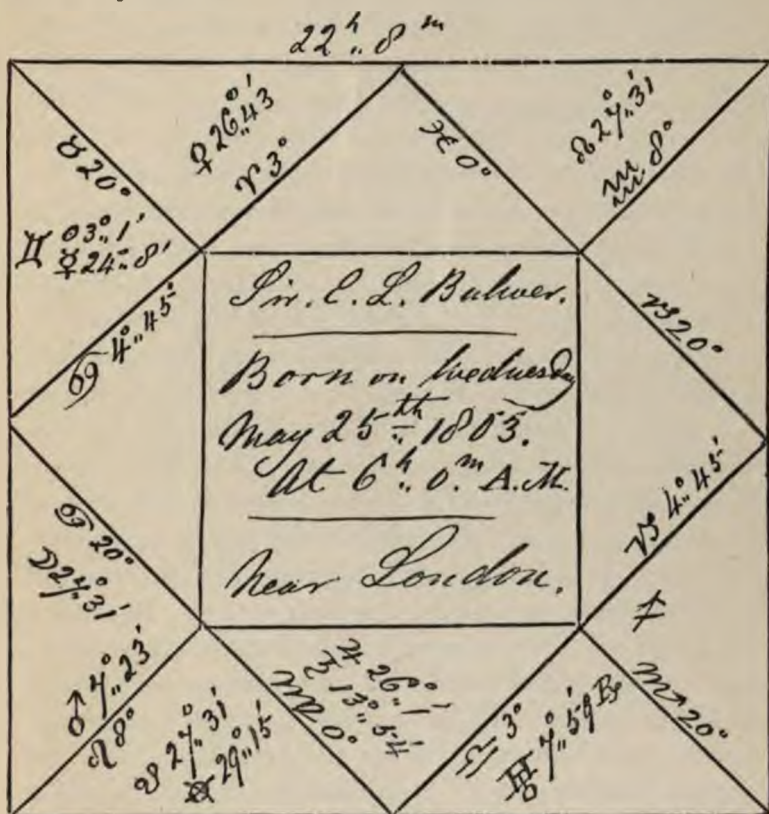 22ʰ 8ᵐ
♀ 26° 43'
♈ 3°
♓ 0°
☊ 27° 31'
♒ 8°
♉ 20°
♊ ☉ 3° 1'
☿ 24° 8'
♋ 4° 45'
♑ 20°
Sir. E. L. Bulwer.
Born on Wednesday
May 25th 1803.
At 6ʰ 0ᵐ A.M.
Near London.
♑ 4° 45'
♐
♋ 20°
☽ 27° 31'
♂ 7° 23'
♌ 8°
☋ 27° 31'
⊗ 29° 15'
♍ 0°
♃ 26° 1'
♄ 13° 54'
♎ 3°
♅ 7° 59 ℞
♏ 20°